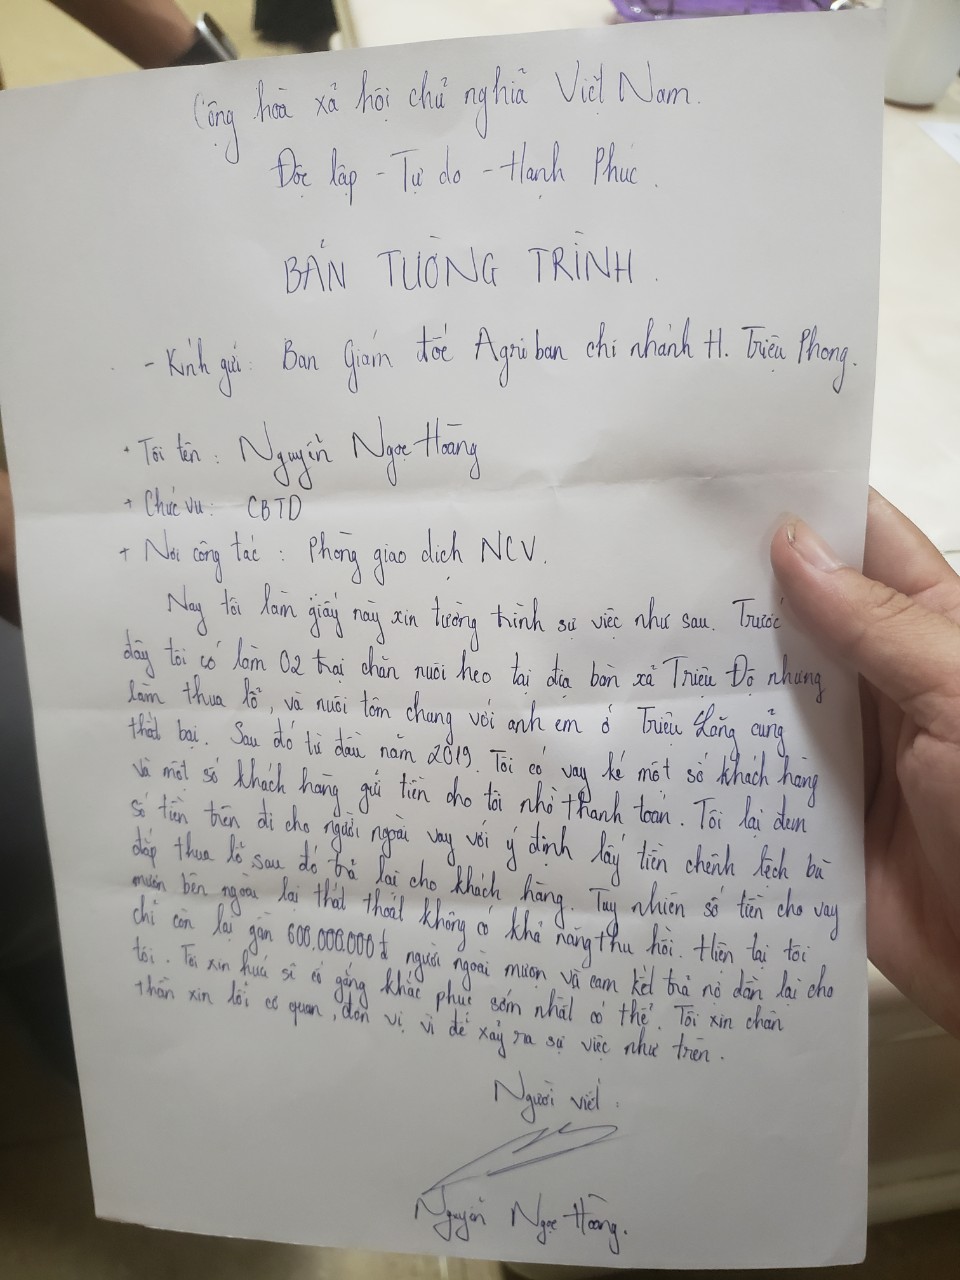 Cộng hoà xã hội chủ nghĩa Việt Nam.
Độc lập - Tự do - Hạnh Phúc.
BẢN TƯỜNG TRÌNH.
- Kính gửi: Ban Giám đốc Agriban chi nhánh H. Triệu Phong.
+ Tôi tên: Nguyễn Ngọc Hoàng
+ Chức vụ: CBTD
+ Nơi công tác: Phòng giao dịch NCV.
Nay tôi làm giấy này xin tường trình sự việc như sau. Trước
đây tôi có làm 02 trại chăn nuôi heo tại địa bàn xã Triệu Độ nhưng
làm thua lỗ, và nuôi tôm chung với anh em ở Triệu Lăng cũng
thất bại. Sau đó từ đầu năm 2019. Tôi có vay ké một số khách hàng
và một số khách hàng gửi tiền cho tôi nhờ thanh toán. Tôi lại đem
số tiền trên đi cho người ngoài vay với ý định lấy tiền chênh lệch bù
đắp thua lỗ sau đó trả lại cho khách hàng. Tuy nhiên số tiền cho vay
mượn bên ngoài lại thất thoát không có khả năng thu hồi. Hiện tại tôi
chỉ còn lại gần 600.000.000đ người ngoài mượn và cam kết trả nợ dần lại cho
tôi. Tôi xin hứa sẽ cố gắng khắc phục sớm nhất có thể. Tôi xin chân
thân xin lỗi cơ quan, đơn vị vì để xảy ra sự việc như trên.
Người viết.
Nguyễn Ngọc Hoàng.